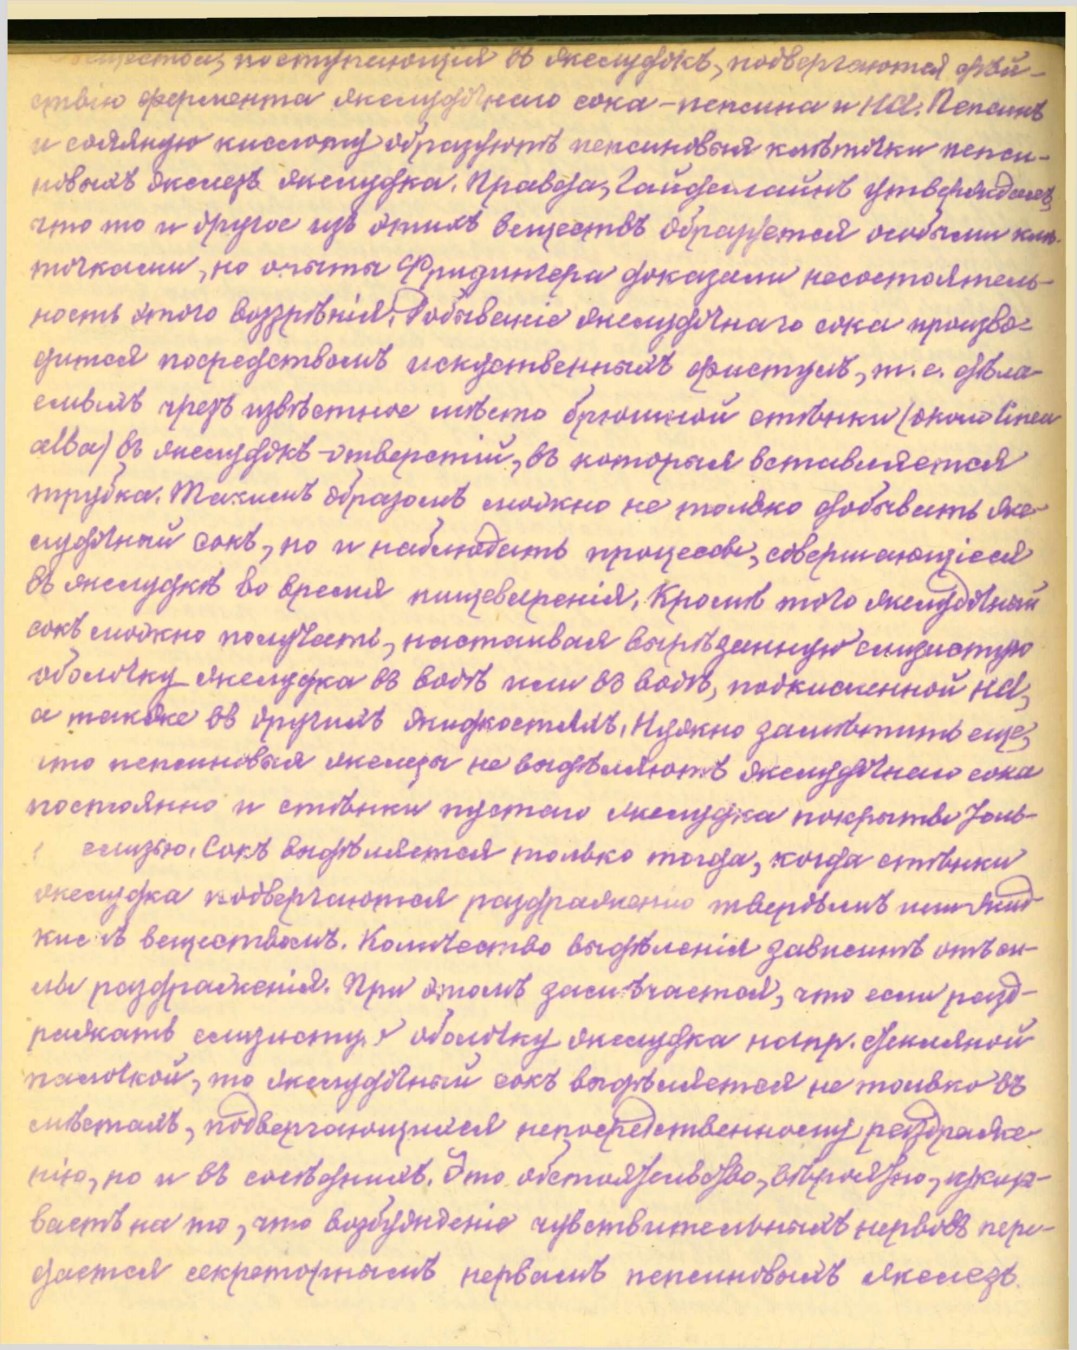 поступающія въ желудокъ, подвергаются дѣй-
ствію фермента желудочнаго сока - пепсина и HCl. Пепсинъ
и соляную кислоту образуютъ пепсиновыя клѣточки пепси-
новыхъ железъ желудка. Правда, Гайденгайнъ утверждалъ,
что то и другое изъ этихъ веществъ образуется особыми клѣ-
точками, но опыты Фридингера доказали несостоятель-
ность этого воззрѣнія. Добываніе желудочнаго сока произво-
дится посредствомъ искуственныхъ фистулъ, т. е. дѣла-
емыхъ чрезъ извѣстное мѣсто брюшной стѣнки (около linea
alba) въ желудокъ отверстій, въ которыя вставляется
трубка. Такимъ образомъ можно не только добывать же-
лудочный сокъ, но и наблюдать процессы, совершающіеся
въ желудкѣ во время пищеваренія. Кромѣ того желудочный
сокъ можно получать, настаивая вырѣзанную слизистую
оболочку желудка въ водѣ или въ водѣ, подкисленной HCl,
а также въ другихъ жидкостяхъ. Нужно замѣтить еще,
что пепсиновыя железы не выдѣляютъ желудочнаго сока
постоянно и стѣнки пустаго желудка покрыты толь-
слизью. Сокъ выдѣляется только тогда, когда стѣнки
желудка подвергаются раздраженію твердымъ или жид-
кимъ веществомъ. Количество выдѣленія зависитъ отъ си-
лы раздраженія. При этомъ замѣчается, что если разд-
ражать слизистую оболочку желудка напр. стеклянной
палочкой, то желудочный сокъ выдѣляется не только въ
мѣстахъ, подвергающихся непосредственному раздраже-
нію, но и въ сосѣднихъ. Это обстоятельство, вѣроятно, указы-
ваетъ на то, что возбужденіе чувствительныхъ нервовъ пере-
дается секреторнымъ нервамъ пепсиновыхъ железъ.